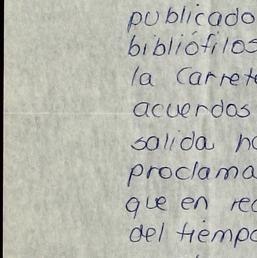 publicado
bibliófilos
la Carrete
acuerdos
salida ha
proclama
que en rec
del tiempo